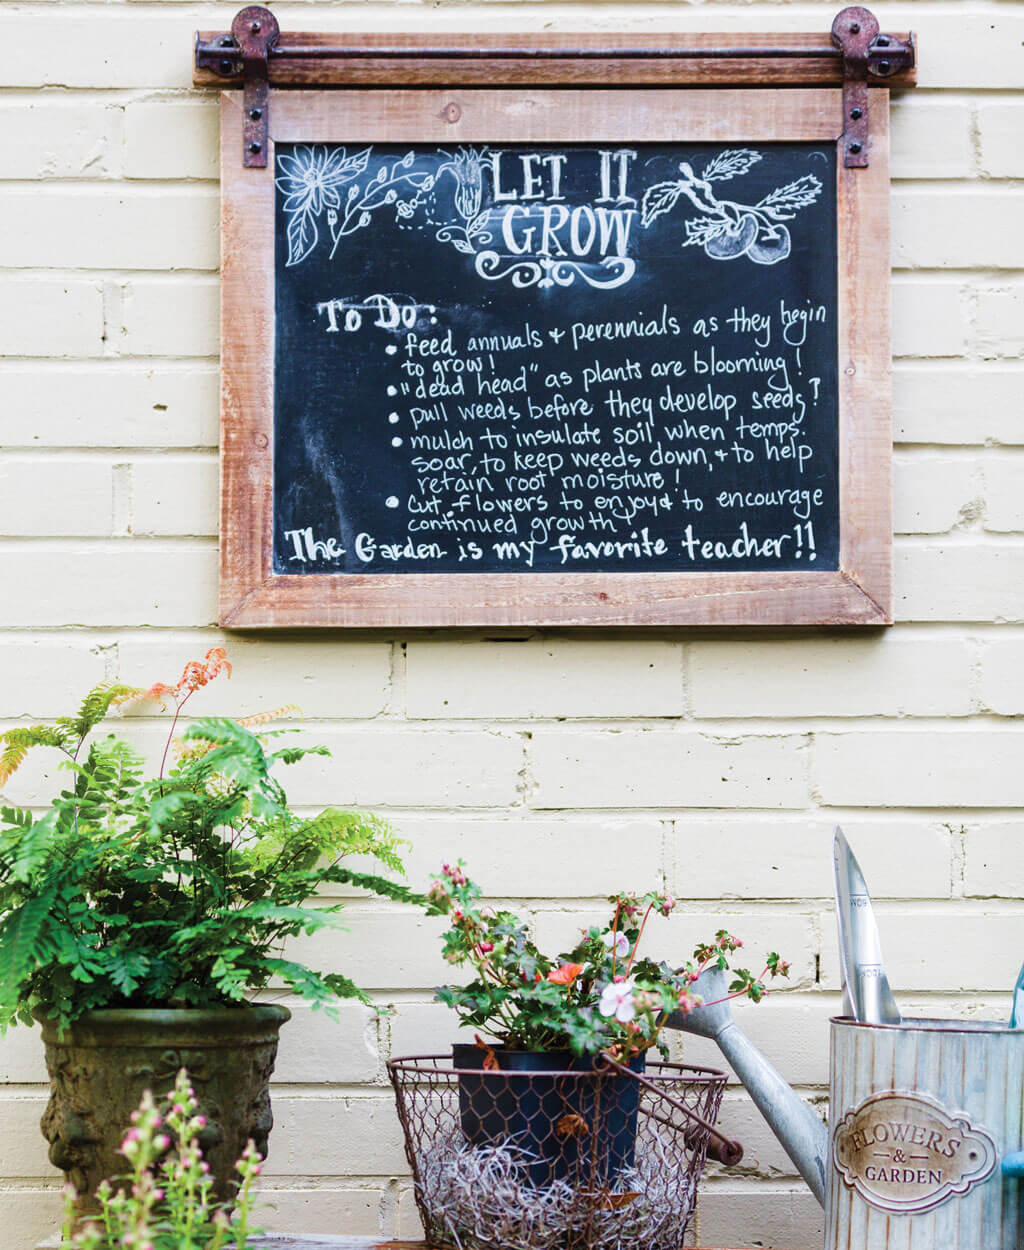 LET IT
GROW
To Do:
• feed annuals + perennials as they begin
to grow!
• "dead head" as plants are blooming!
• pull weeds before they develop seeds!
• mulch to insulate soil when temps.
soar, to keep weeds down, + to help
retain root moisture!
• Cut flowers to enjoy & to encourage
continued growth
The Garden is my favorite teacher!!
FLOWERS
&
GARDEN